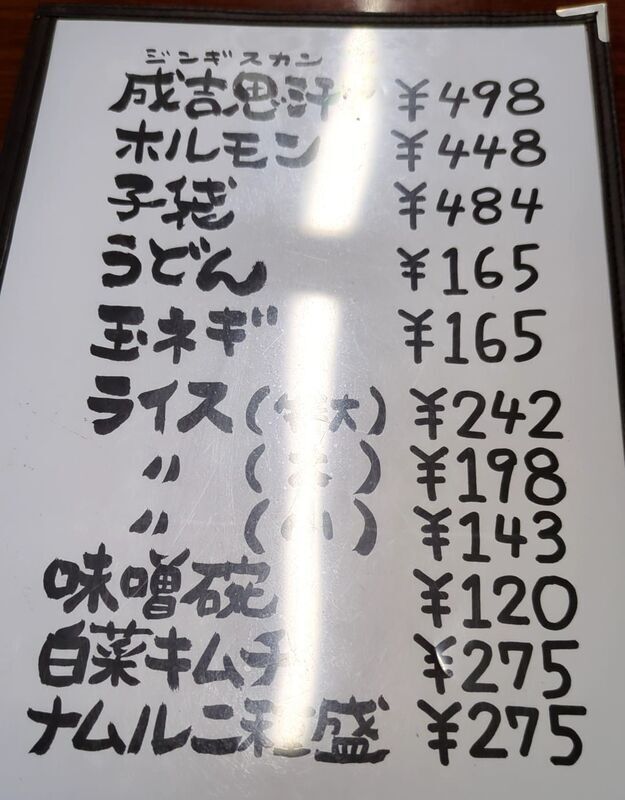 ジンギスカン
成吉思汗 ¥498
ホルモン ¥448
子袋 ¥484
うどん ¥165
玉ネギ ¥165
ライス(特大) ¥242
〃 ( ) ¥198
〃 (小) ¥143
味噌碗 ¥120
白菜キムチ ¥275
ナムル二種盛 ¥275